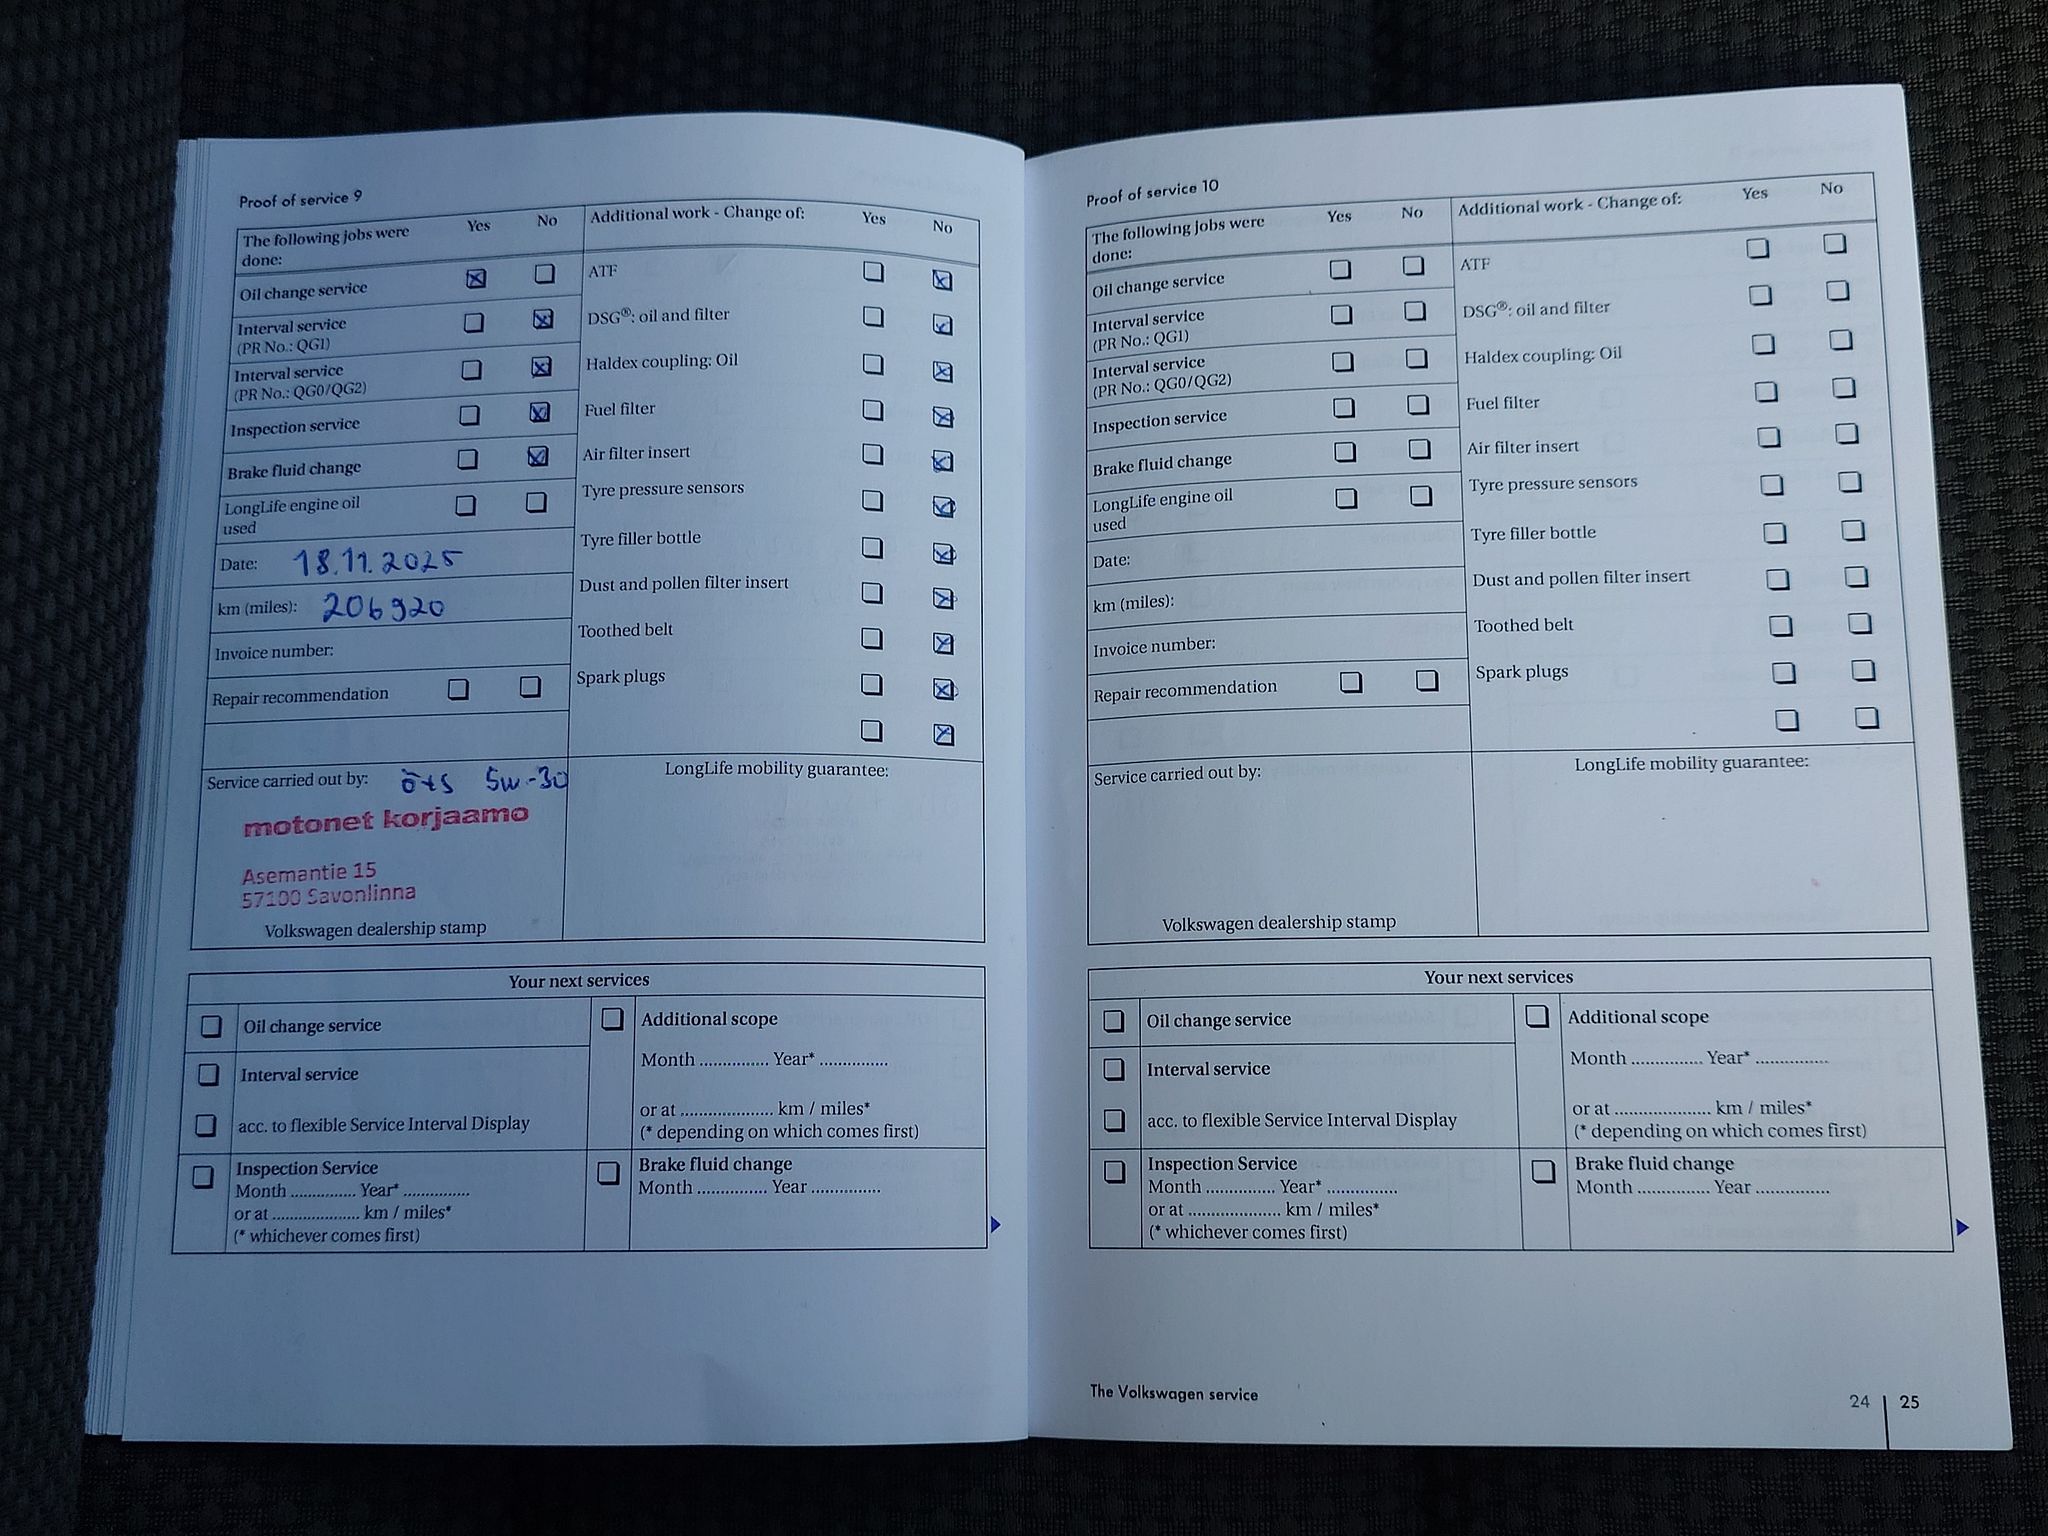 Proof of service 9
The following jobs were done: Yes No
Oil change service
Interval service
(PR No.: QG1)
Interval service
(PR No.: QG0/QG2)
Inspection service
Brake fluid change
LongLife engine oil
used
Date: 18.11.2025
km (miles): 206920
Invoice number:
Repair recommendation
Additional work - Change of: Yes No
ATF
DSG®: oil and filter
Haldex coupling: Oil
Fuel filter
Air filter insert
Tyre pressure sensors
Tyre filler bottle
Dust and pollen filter insert
Toothed belt
Spark plugs
Service carried out by: öts 5w-30
motonet korjaamo
Asemantie 15
57100 Savonlinna
Volkswagen dealership stamp
LongLife mobility guarantee:
Your next services
Oil change service
Interval service
acc. to flexible Service Interval Display
Inspection Service
Month .............. Year* ..............
or at .................... km / miles*
(* whichever comes first)
Additional scope
Month .............. Year* ..............
or at .................... km / miles*
(* depending on which comes first)
Brake fluid change
Month .............. Year ..............
Proof of service 10
The following jobs were done: Yes No
Oil change service
Interval service
(PR No.: QG1)
Interval service
(PR No.: QG0/QG2)
Inspection service
Brake fluid change
LongLife engine oil
used
Date:
km (miles):
Invoice number:
Repair recommendation
Additional work - Change of: Yes No
ATF
DSG®: oil and filter
Haldex coupling: Oil
Fuel filter
Air filter insert
Tyre pressure sensors
Tyre filler bottle
Dust and pollen filter insert
Toothed belt
Spark plugs
Service carried out by:
Volkswagen dealership stamp
LongLife mobility guarantee:
Your next services
Oil change service
Interval service
acc. to flexible Service Interval Display
Inspection Service
Month .............. Year* ..............
or at .................... km / miles*
(* whichever comes first)
Additional scope
Month .............. Year* ..............
or at .................... km / miles*
(* depending on which comes first)
Brake fluid change
Month .............. Year ..............
The Volkswagen service
24 | 25